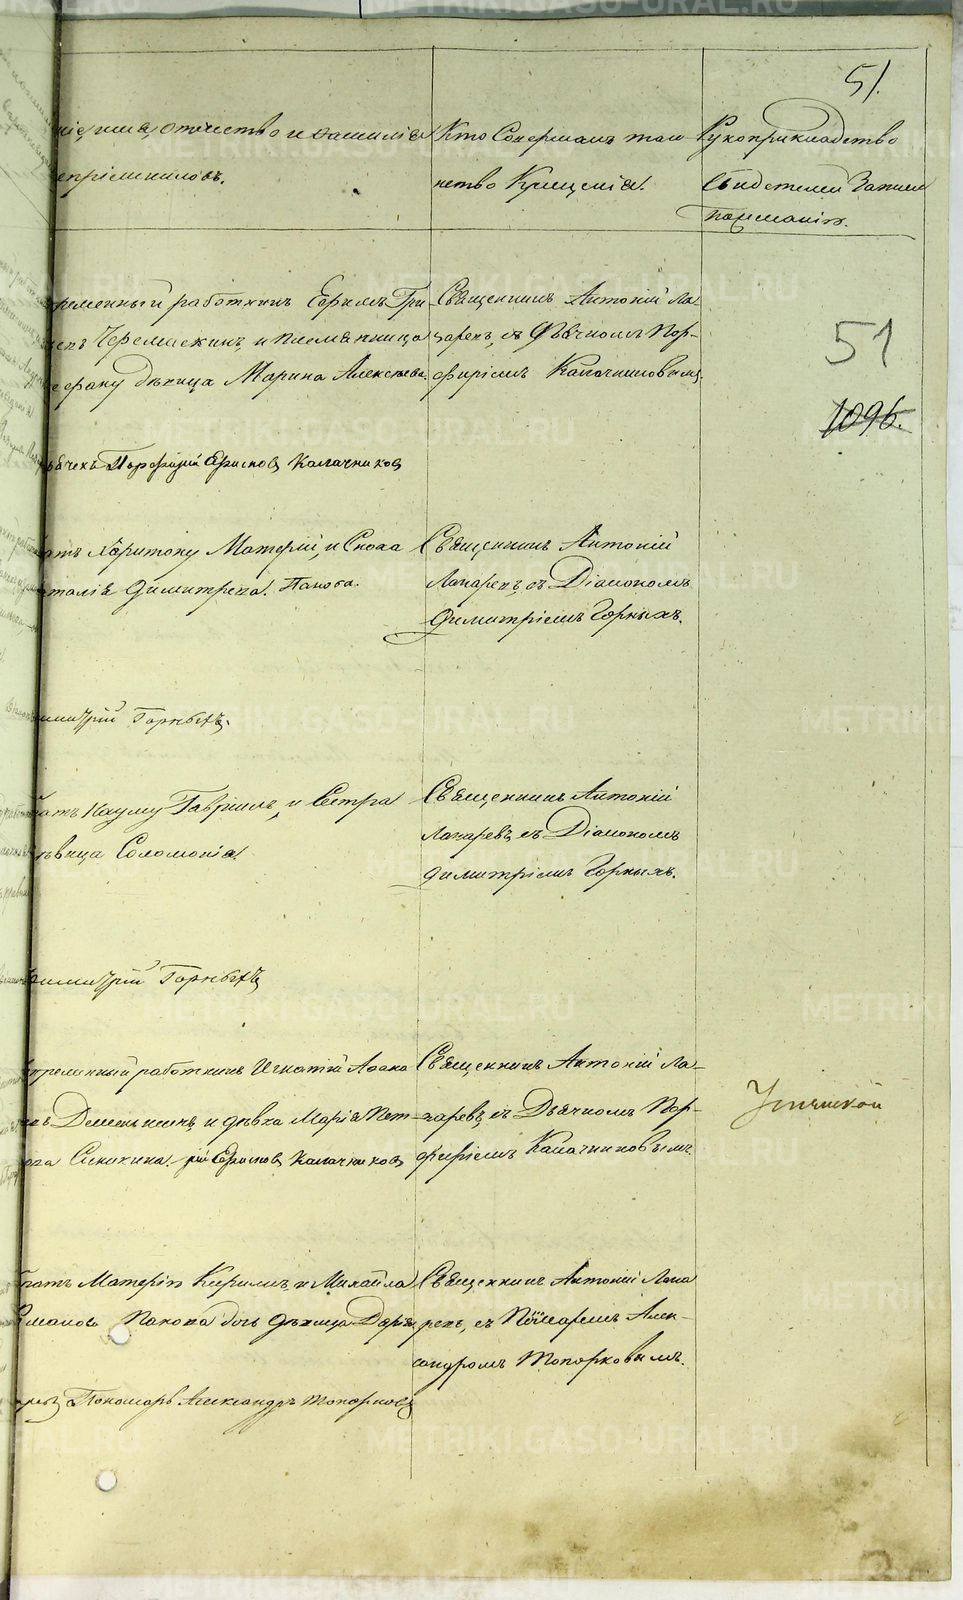 51.
ніе, имя, отчество и фамилія
воспріемниковъ.
Кто Совершалъ таин-
ство Крещенія.
Рукоприкладство
Свидетелей Записи
по желанію.
временный работникъ Ефимъ Гри-
Черемискинъ, и племянница
Стефану дѣвица Марина Алексѣева.
Священникъ Антоній Ла-
заревъ, съ Дьячкомъ Пор-
фиріемъ Калачниковымъ.
51
1096.
Дьячекъ Порфирій Ефимовъ Калачниковъ
братъ Харитону Матерій, и Сноха
Наталія Димитрева. Панова.
Священникъ Антоній
Лазаревъ, съ Діакономъ
Димитріемъ Горныхъ.
Димитрій Горныхъ.
братъ Науму Гавріилъ, и Сестра
дѣвица Соломонія.
Священникъ Антоній
Лазаревъ, съ Діакономъ
Димитріемъ Горныхъ.
Димитрій Горныхъ
временный работникъ Игнатій
и дѣвка Марія Пет-
рова рій Ефимовъ Калачниковъ
Священникъ Антоній Ла-
заревъ, съ Дьячкомъ Пор-
фиріемъ Калачниковымъ.
братъ Матери Кирилъ, и Михайла
Панова дочь дѣвица Дарья
Священникъ Антоній Лаза
ревъ, съ Пономаремъ Алек-
сандромъ Топорковымъ.
Пономарь Александръ Топорковъ
METRIKI.GASO-URAL.RU